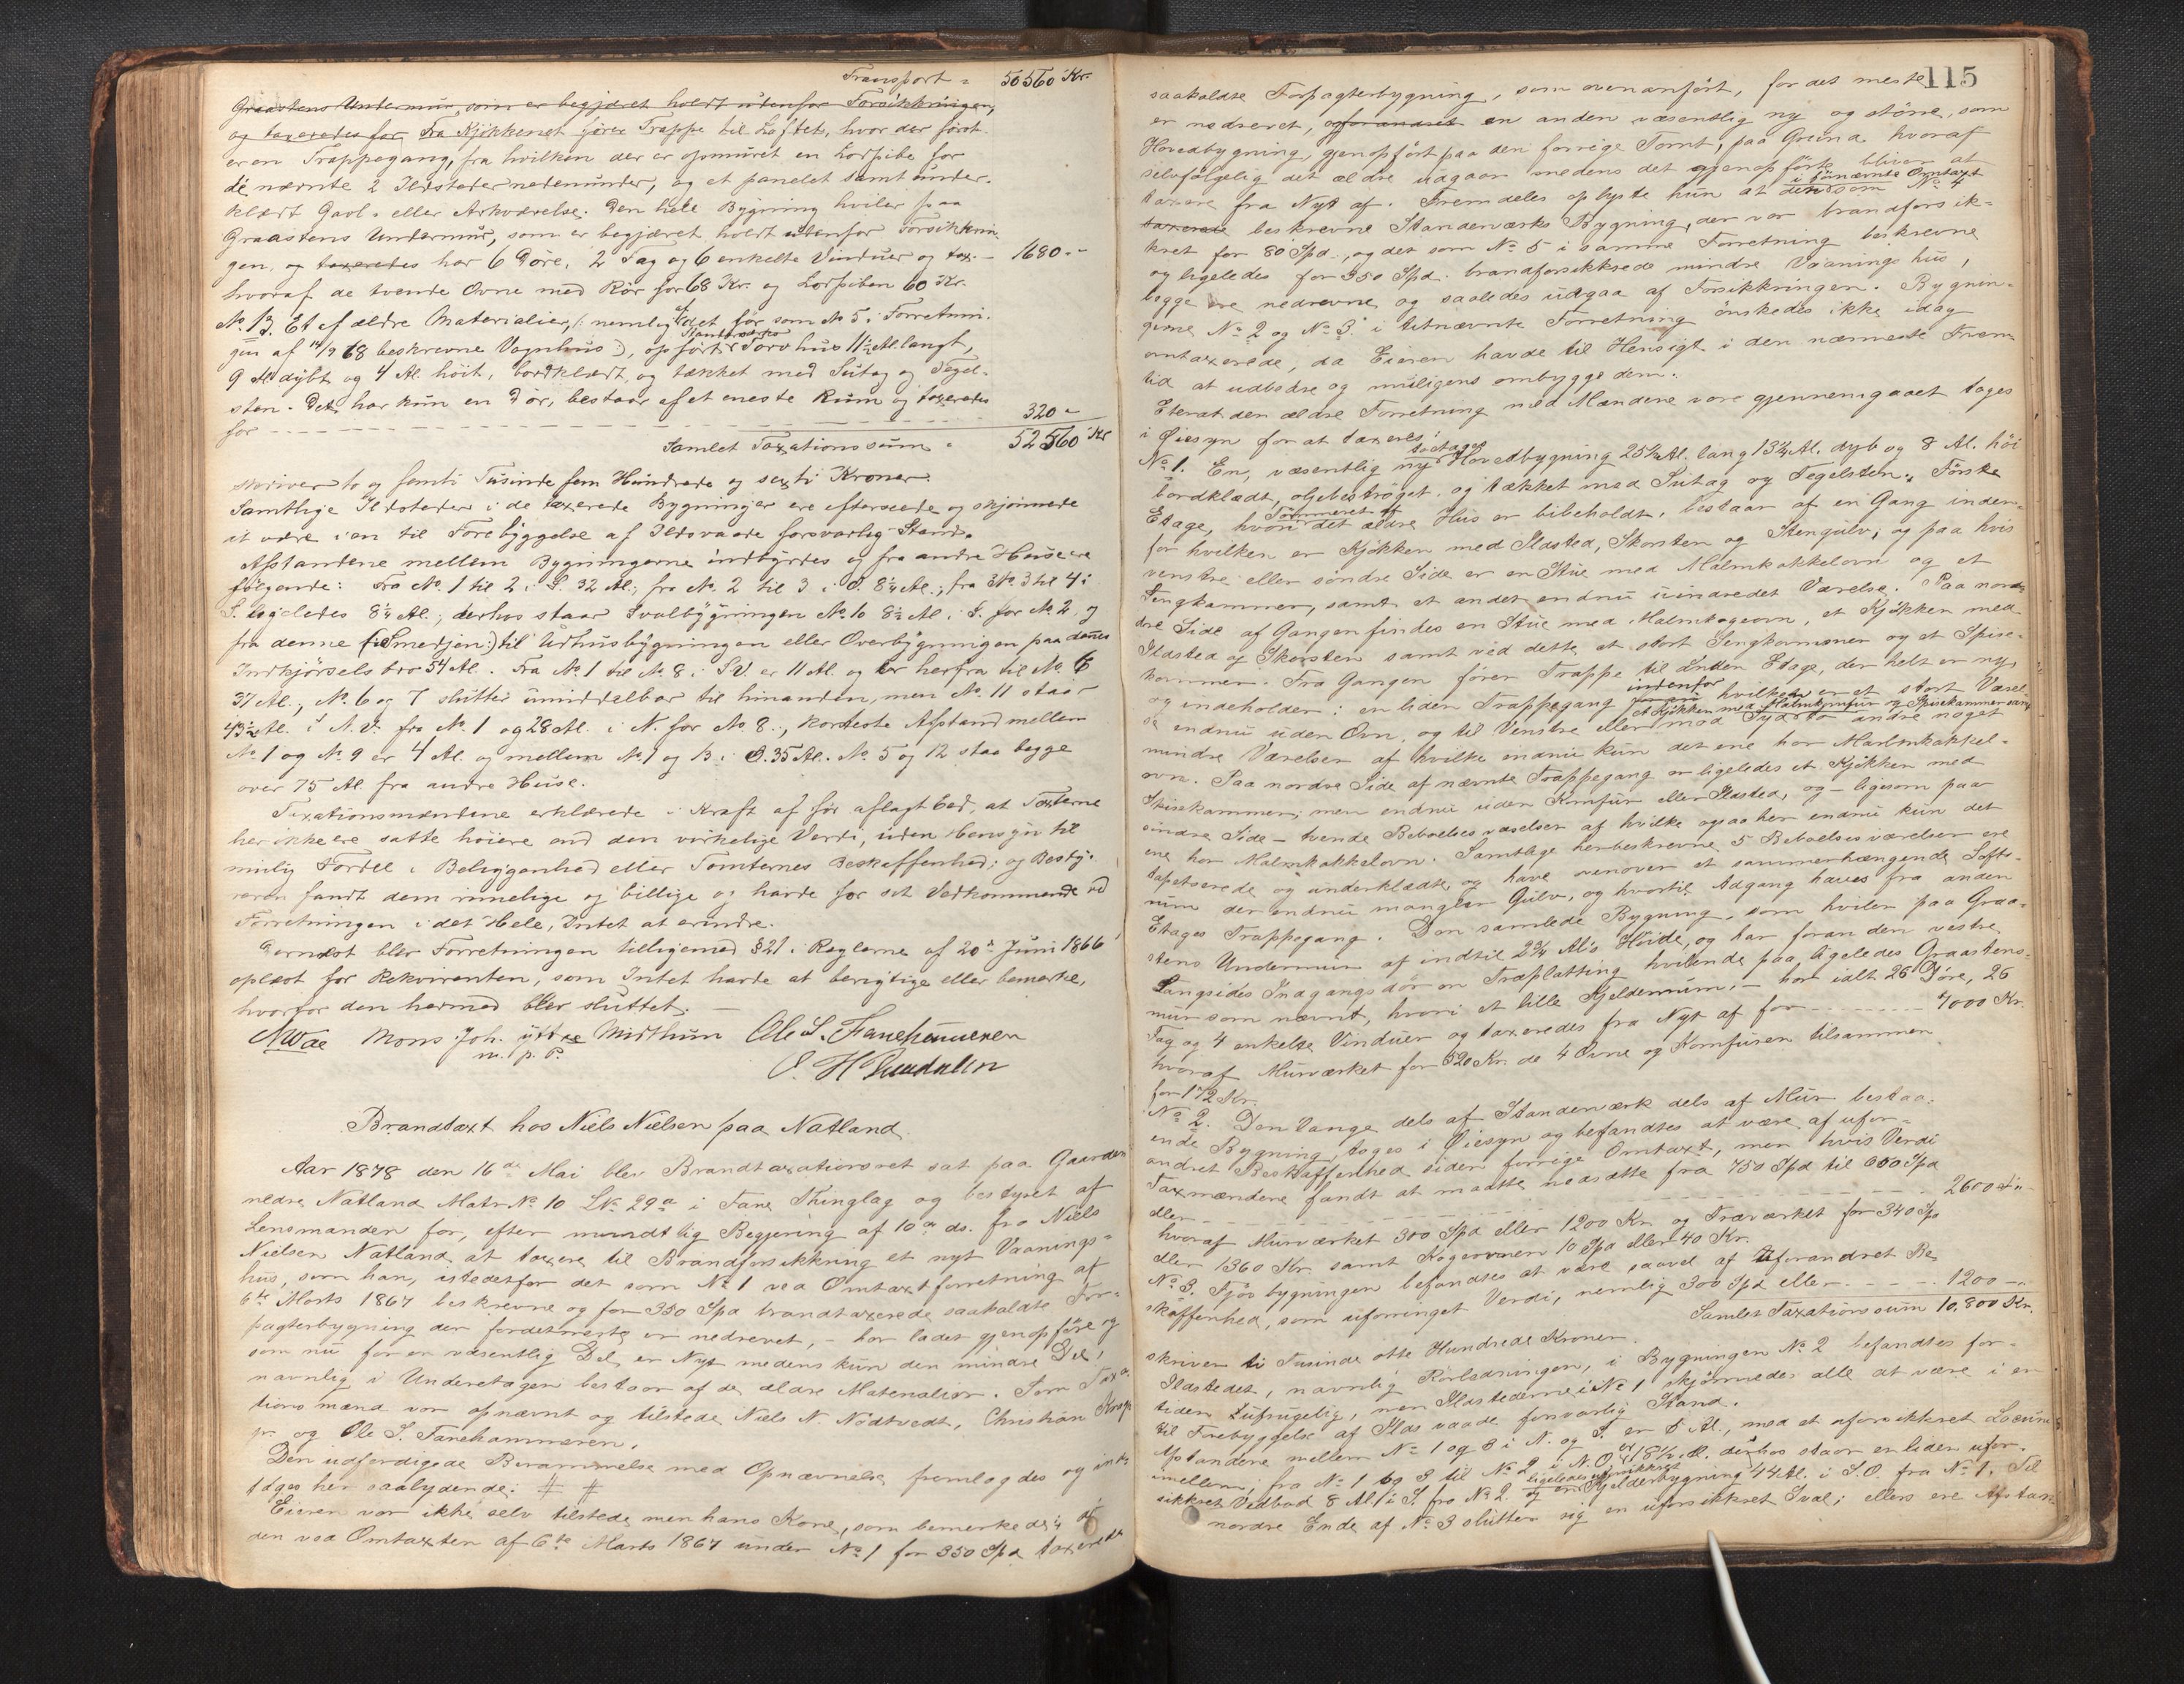 Transport = 50560 Kr.
Graastens Undermur, som er begjæret holdt udenfor Forsikkringen,
og taxeredes for Fra Kjøkkenet fører Trappe til Loftet, hvor der først
er en Trappegang, fra hvilken der er opmuret en Lorpibe for
de nævnte 2 Ildsteder nedenunder, og et panelet samt under-
klædt Gavl- eller Arkværelse. Den hele Bygning hviler paa
Graastens Undermur, som er begjæret holdt udenfor Forsikkrin-
gen, og taxeredes har 6 Døre, 2 Fag og 6 enkelte Vinduer og tax. — 1680 "-
hvoraf de tvende Ovne med Rør for 68 Kr. og Lorpiben 60 Kr.
No 13. Et af ældre Materialier, (: nemlig af det før som No 5 i Forretnin-
gen af 14/9 68 beskrevne Vognhus :), opført Standværks Torvhus 11½ Al. langt,
9 Al. dybt og 4 Al. høit, bordklædt, og tækket med Sutag og Tegel-
sten. Det har kun en Dør, bestaar af et eneste Rum og taxeredes
for 320 "
Samlet Taxationssum = 52560 Kr
skriver to og femti Tusinde fem Hundrede og sexti Kroner.
Samtlige Ildsteder i de taxerede Bygninger ere efterseede og skjønnede
at være i en til Forebyggelse af Ildsvaade forsvarlig Stand.
Afstandene mellem Bygningerne indbyrdes og fra andre Huse ere
følgende: Fra No. 1 til 2 i S. 32 Al., fra No. 2 til 3 i O. 8¼ Al., fra No. 3 til 4 i
S. ligeledes 8¼ Al., derhos staar Svalbygningen No. 10 8½ Al. i S. for No 2, og
fra denne (: Smedjen :) til Udhusbygningen eller Overbygningen paa dennes
Indkjørselsbro 54 Al. Fra No. 1 til No. 8 i SV. er 11 Al. og er herfra til No. 6
37 Al., No. 6 og 7 slutter umiddelbar til hinanden, men No. 11 staar
43½ Al. i N.V. fra No. 1 og 28 Al. i N. for No 8., korteste Afstand mellem
No. 1 og No. 9 er 4 Al. og mellem No. 1 og 13 i O. 35 Al. No. 5 og 12 staa begge
over 75 Al. fra andre Huse.
Taxationsmændene erklærede i Kraft af før aflagt Eed, at Taxterne
her ikke ere satte høiere end den virkelige Verdi, uden Hensyn til
mulig Fordel i Beliggenhed eller Tomternes Beskaffenhed; og Besty-
reren fandt dem rimelige og billige og havde for sit Vedkommende ved
Forretningen i det Hele, Intet at erindre.
Dernæst blev Forretningen tilligemed § 21 i Reglerne af 20de Juni 1866
oplæst for Rekvirenten, som Intet havde at berigtige eller bemærke,
hvorfor den hermed blev sluttet. —
Mons Joh. yttre Midthun Ole S. Fanehammeren
m. p. P.
Brandtaxt hos Niels Nielsen paa Natland.
Aar 1878 den 16de Mai blev Brandtaxationsret sat paa Gaarden
nedre Natland Matr. No 10 L.No. 29a i Fane Thinglag og bestyret af
Lensmanden for, efter mundtlig Begjering af 10de ds. fra Niels
Nielsen Natland at taxere til Brandforsikkring et nyt Vaanings-
hus, som han, istedetfor det som No 1 ved Omtaxtforretning af
6te Marts 1867 beskrevne og for 350 Spd brandtaxerede saakaldte For-
pagterbygning der fordetmeste er nedrevet, – har ladet gjenopføre og
som nu for en væsentlig Del er Nyt medens kun den mindre Del,
navnlig i Underetagen bestaar af de ældre Materialier. Som Taxa-
tionsmænd var opnævnt og tilstede Niels N. Nødtvedt, Christian
jr. og Ole S. Fanehammeren.
Den udfærdigede Berammelse med Opnævnelse fremlagdes og ind-
tages her saalydende: # #
Eieren var ikke selv tilstede men hans Kone, som bemærkede, at
den ved Omtaxten af 6te Marts 1867 under No 1 for 350 Spd taxerede
115
saakaldte Forpagterbygning, som ovenanført, for det meste
er nedrevet, og forandret en anden væsentlig ny og større, som
Hovedbygning, gjenopført paa den forrige Tomt, paa Grund hvoraf
selvfølgelig det ældre udgaar medens det gjenopførte bliver at
taxere fra Nyt af. Fremdeles oplyste hun at den i førnævnte Omtaxt som No 4
taxerede beskrevne Standeværks Bygning, der var brandforsik-
kret for 80 Spd., og det som No 5 i samme Forretning beskrevne
og ligeledes for 350 Spd. brandforsikkrede mindre Vaaningshus,
begge ere nedrevne og saaledes udgaa af Forsikkringen. Bygnin-
gerne No 2 og No 3 i sidstnævnte Forretning ønskedes ikke idag
omtaxerede, da Eieren havde til Hensigt i den nærmeste Frem-
tid at udbedre og muligens ombygge dem.
Efterat den ældre Forretning med Mændene vare gjennemgaaet toges
i Øiesyn for at taxeres:
No 1. En, væsentlig ny toetages Hovedbygning 25¾ Al. lang 13¼ Al. dyb og 8 Al. høi
bordklædt, oljebestrøget, og tækket med Sutag og Tegelsten. Første
Etage, hvori Tømmeret af det ældre Hus er bibeholdt, bestaar af en Gang inden-
for hvilken er Kjøkken med Ildsted, Skorsten og Stengulv, og paa hvis
venstre eller søndre Side er en Stue med Malmkakkelovn og et
Sengkammer, samt et andet endnu uindredet Værelse. Paa nor-
dre Side af Gangen findes en Stue med Malmkogeovn, et Kjøkken med
Ildsted og Skorsten samt ved dette, et stort Sengkammer og et Spise-
kammer. Fra Gangen fører Trappe til anden Etage, der helt er ny,
og indeholder: en liden Trappegang indenfor hvilken er et stort Værel-
se endnu uden Ovn, og til Venstre eller mod Syd et Kjøkken med Malmkomfur og Spisekammer samt to andre noget
mindre Værelser af hvilke endnu kun det ene har Malmkakkel-
ovn. Paa nordre Side af nævnte Trappegang er ligeledes et Kjøkken med
Spisekammer, men endnu uden Komfur eller Ildsted, og – ligesom paa
søndre Side – tvende Beboelsesværelser af hvilke ogsaa her endnu kun det
ene har Malmkakkelovn. Samtlige herbeskrevne 5 Beboelsesværelser ere
tapetserede og underklædte og have ovenover et sammenhængende Lofts-
rum der endnu mangler Gulv, og hvortil Adgang haves fra anden
Etages Trappegang. Den samlede Bygning, som hviler paa Graa-
stens Undermur af indtil 2¾ Al's Høide, og har foran den vestre
Langsides Indgangsdør en Træplatting hvilende paa ligeledes Graastens-
mur som nævnt, hvori et lille Kjelderrum, – har ialt 26 Døre, 26
Fag og 4 enkelte Vinduer og taxeredes fra Nyt af for 7000 Kr.
hvoraf Murværket for 520 Kr. de 4 Ovne og Komfuren tilsammen
for 172 Kr.
No 2. Den lange dels af Standerværk dels af Mur bestaa-
ende Bygning, toges i Øiesyn og befandtes at være af ufor-
andret Beskaffenhed siden forrige Omtaxt, men hvis Verdi
Taxmændene fandt at maatte nedsætte fra 750 Spd til 650 Spd
eller 2600 "
hvoraf Murværket 300 Spd eller 1200 Kr. og Træværket for 340 Spd
eller 1360 Kr. samt Kogeovnen 10 Spd eller 40 Kr.
No 3. Fjøsbygningen befandtes at være saavel af uforandret Be-
skaffenhed, som uforringet Verdi, nemlig 300 Spd eller 1200 "
Samlet Taxationssum 10,800 Kr.
skriver ti Tusinde otte Hundrede Kroner.
Ildstedet, navnlig Rørledningen, i Bygningen No 2 befandtes for-
tiden ufrugelig, men Ildstederne i No 1 skjønnedes alle at være i en
til Forebyggelse af Ildsvaade forsvarlig Stand.
Afstandene mellem No 1 og 3 i N. og S. er 8 Al., med et uforsikkret Locum
imellem, fra No 1 og 3 til No 2 i N.O. er 18½ Al. derhos staar en liden ufor-
sikkret Vedbod 8 Al i S. fra No 2 og en ligeledes uforsikkret Kjelderbygning 44 Al. i S.O. fra No 1. Til
nordre Ende af No 3 slutter sig en uforsikkret Sval; ellers ere Afstan-